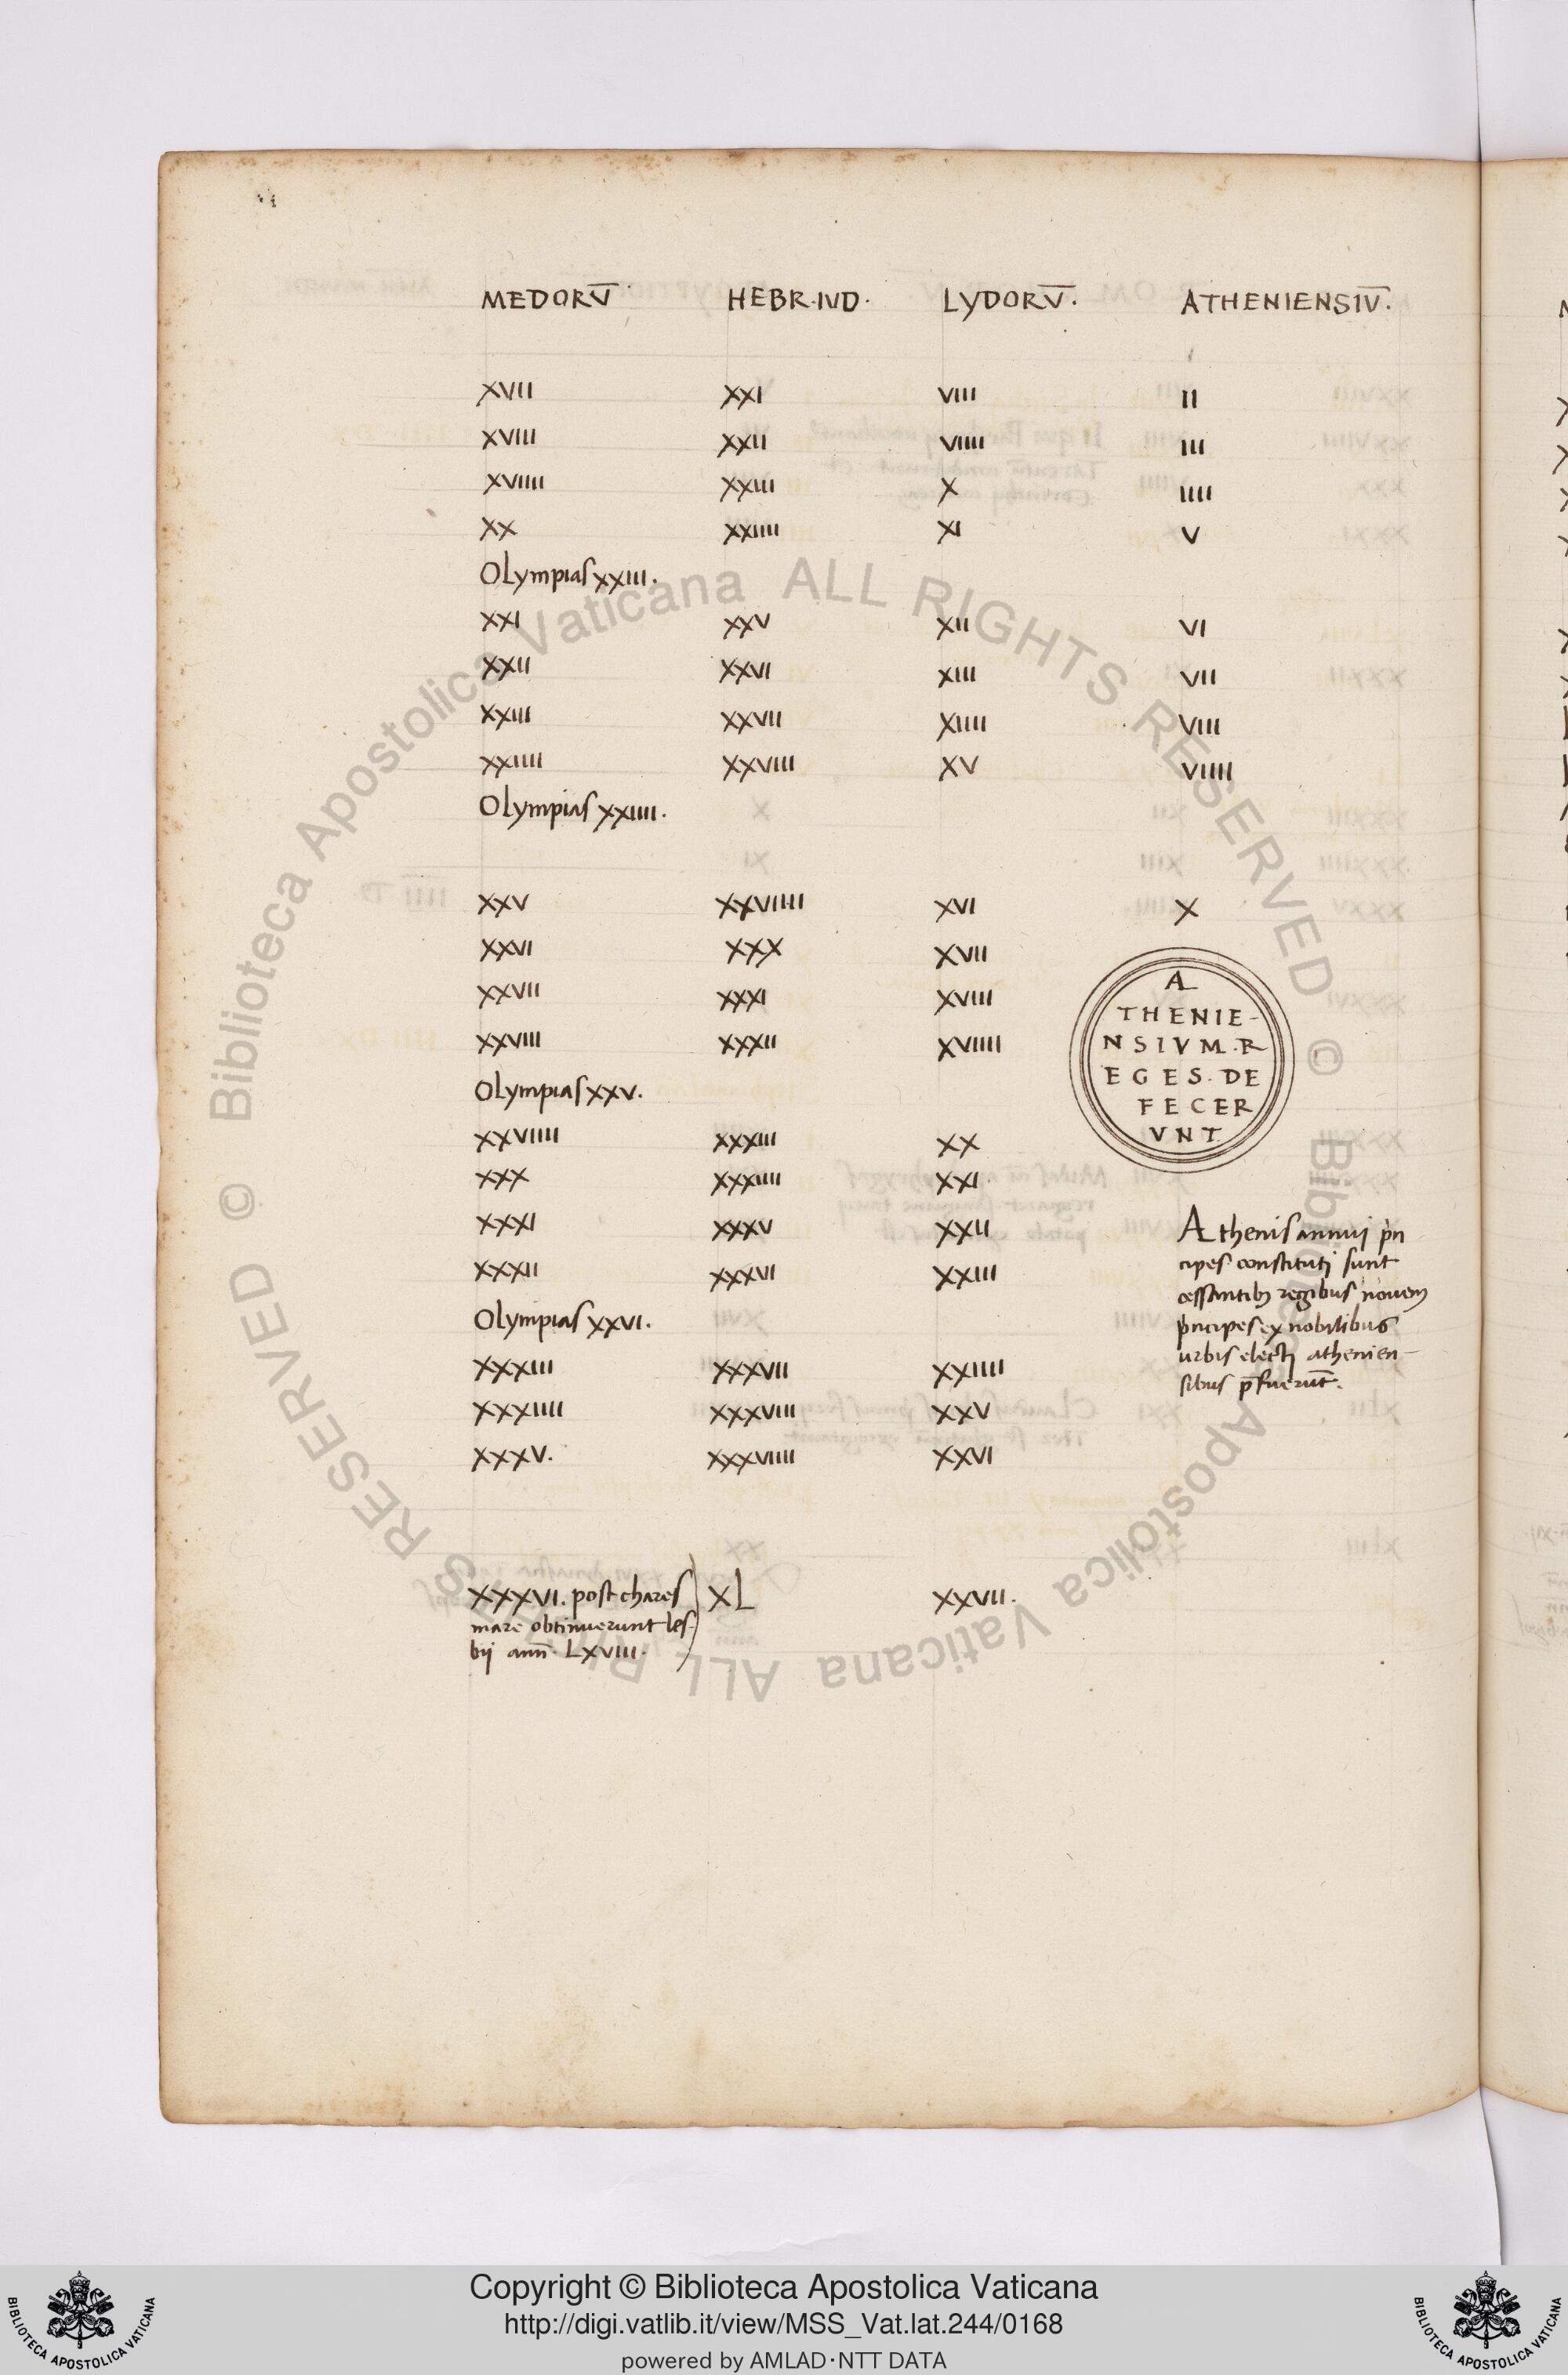 MEDORV̅ HEBR·IVD· LYDORV̅· ATHENIENSIV̅·
XVII XXI VIII II
XVIII XXII VIIII III
XVIIII XXIII X IIII
XX XXIIII XI V
Olympias XXIII·
XXI XXV XII VI
XXII XXVI XIII VII
XXIII XXVII XIIII VIII
XXIIII XXVIII XV VIIII
Olympias XXIIII·
XXV XXVIIII XVI X
XXVI XXX XVII
XXVII XXXI XVIII
XXVIII XXXII XVIIII
A
THENIE-
NSIVM·R
EGES·DE
FECER
VNT
Olympias XXV·
XXVIIII XXXIII XX
XXX XXXIIII XXI
XXXI XXXV XXII
XXXII XXXVI XXIII
Olympias XXVI·
XXXIII XXXVII XXIIII
XXXIIII XXXVIII XXV
XXXV· XXXVIIII XXVI
Athenis annui pn
cipes constituti sunt
cessantib; regibus novem
pncipes ex nobilibus
urbis electi athenien-
sibus p̅fuerūt·
XXXVI· post chares XL XXVII·
mare obtinuerunt les-
bij ann̅· LXVIII·
© Biblioteca Apostolica Vaticana ALL RIGHTS RESERVED © Biblioteca Apostolica Vaticana ALL RIGHTS RESERVED
Copyright © Biblioteca Apostolica Vaticana
http://digi.vatlib.it/view/MSS_Vat.lat.244/0168
powered by AMLAD·NTT DATA
BIBLIOTECA APOSTOLICA VATICANA
BIBLIOTECA APOSTOLICA VATICANA